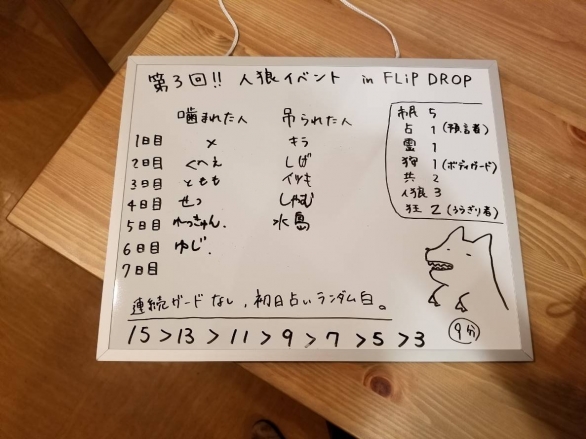 第3回!! 人狼イベント in FLiP DROP
噛まれた人 吊られた人
1日目 × キラ
2日目 くへえ しげ
3日目 ともも
4日目 せつ しゃむ
5日目 水島
6日目 ゆじ.
7日目
市民 5
占 1 (預言者)
霊 1
狩 1 (ボディガード)
共 2
人狼 3
狂 2 (うらぎり者)
連続ガードなし、初日占いランダム白。
15 > 13 > 11 > 9 > 7 > 5 > 3
9分